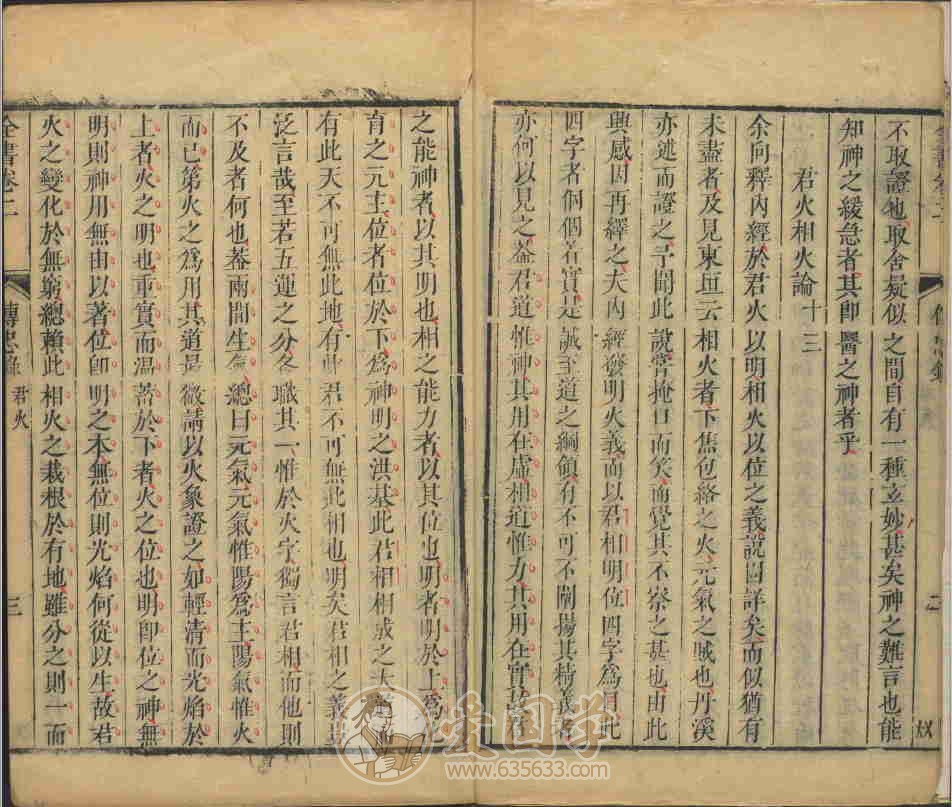 不取證也取舍疑似之間自有一種玄妙甚矣神之難言也能
知神之緩急者其即醫之神者乎
君火相火論 十三
余向釋內經於君火以明相火以位之義說固詳矣而似猶有
未盡者及見東垣云相火者下焦包絡之火元氣之賊也丹溪
亦述而證之予聞此說嘗掩口而笑而覺其不察之甚也由此
興感因再繹之夫內經發明火義而以君相明位四字為目此
四字者個個著實是誠至道之綱領有不可不闡揚其精義者
亦何以見之葢君道惟神其用在虛相道惟力其用在實故君
之能神者以其明也相之能力者以其位也明者明於上為化
育之元主位者位於下為神明之洪基此君相成之大道而
有此天不可無此地有此君不可無此相也明矣君相之義豈
泛言哉至若五運之分各職其一惟於火字獨言君相而他則
不及者何也葢兩間生氣總曰元氣元氣惟陽為主陽氣惟火
而已第火之為用其道最微請以火象證之如輕清而光焰於
上者火之明也重實而溫蓄於下者火之位也明即位之神無
明則神用無由以著位即明之本無位則光焰何從以生故君
火之變化於無窮總賴此相火之栽根於有地雖分之則一而
全書卷二 傳忠錄 君火 三
傳忠錄 二
愛國學
www.635633.com